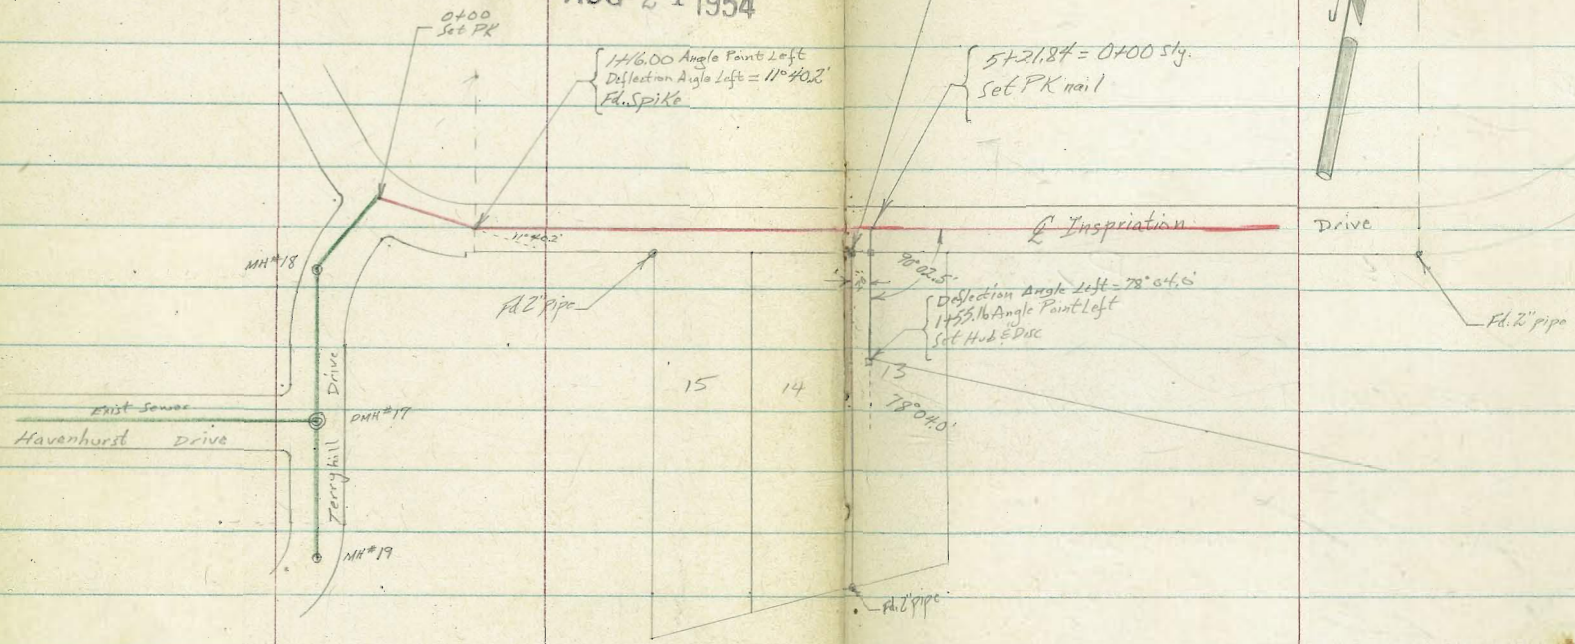 1954
0+00
Set PK
1+16.00 Angle Point Left
Deflection Angle Left = 11°40.2'
Fd. Spike
5+21.84 = 0+00 Sly.
Set PK nail
11°40.2'
℄ Inspriation Drive
MH#18
Fd. 2" pipe
90°02.5'
Deflection Angle Left = 78°04.0'
1+55.16 Angle Point Left
Set Hub & Disc
Fd. 2" pipe
15
14
13
78°04.0'
Exist Sewer
DMH#17
Havenhurst Drive
Terryhill Drive
MH#19
Fd. 2" pipe